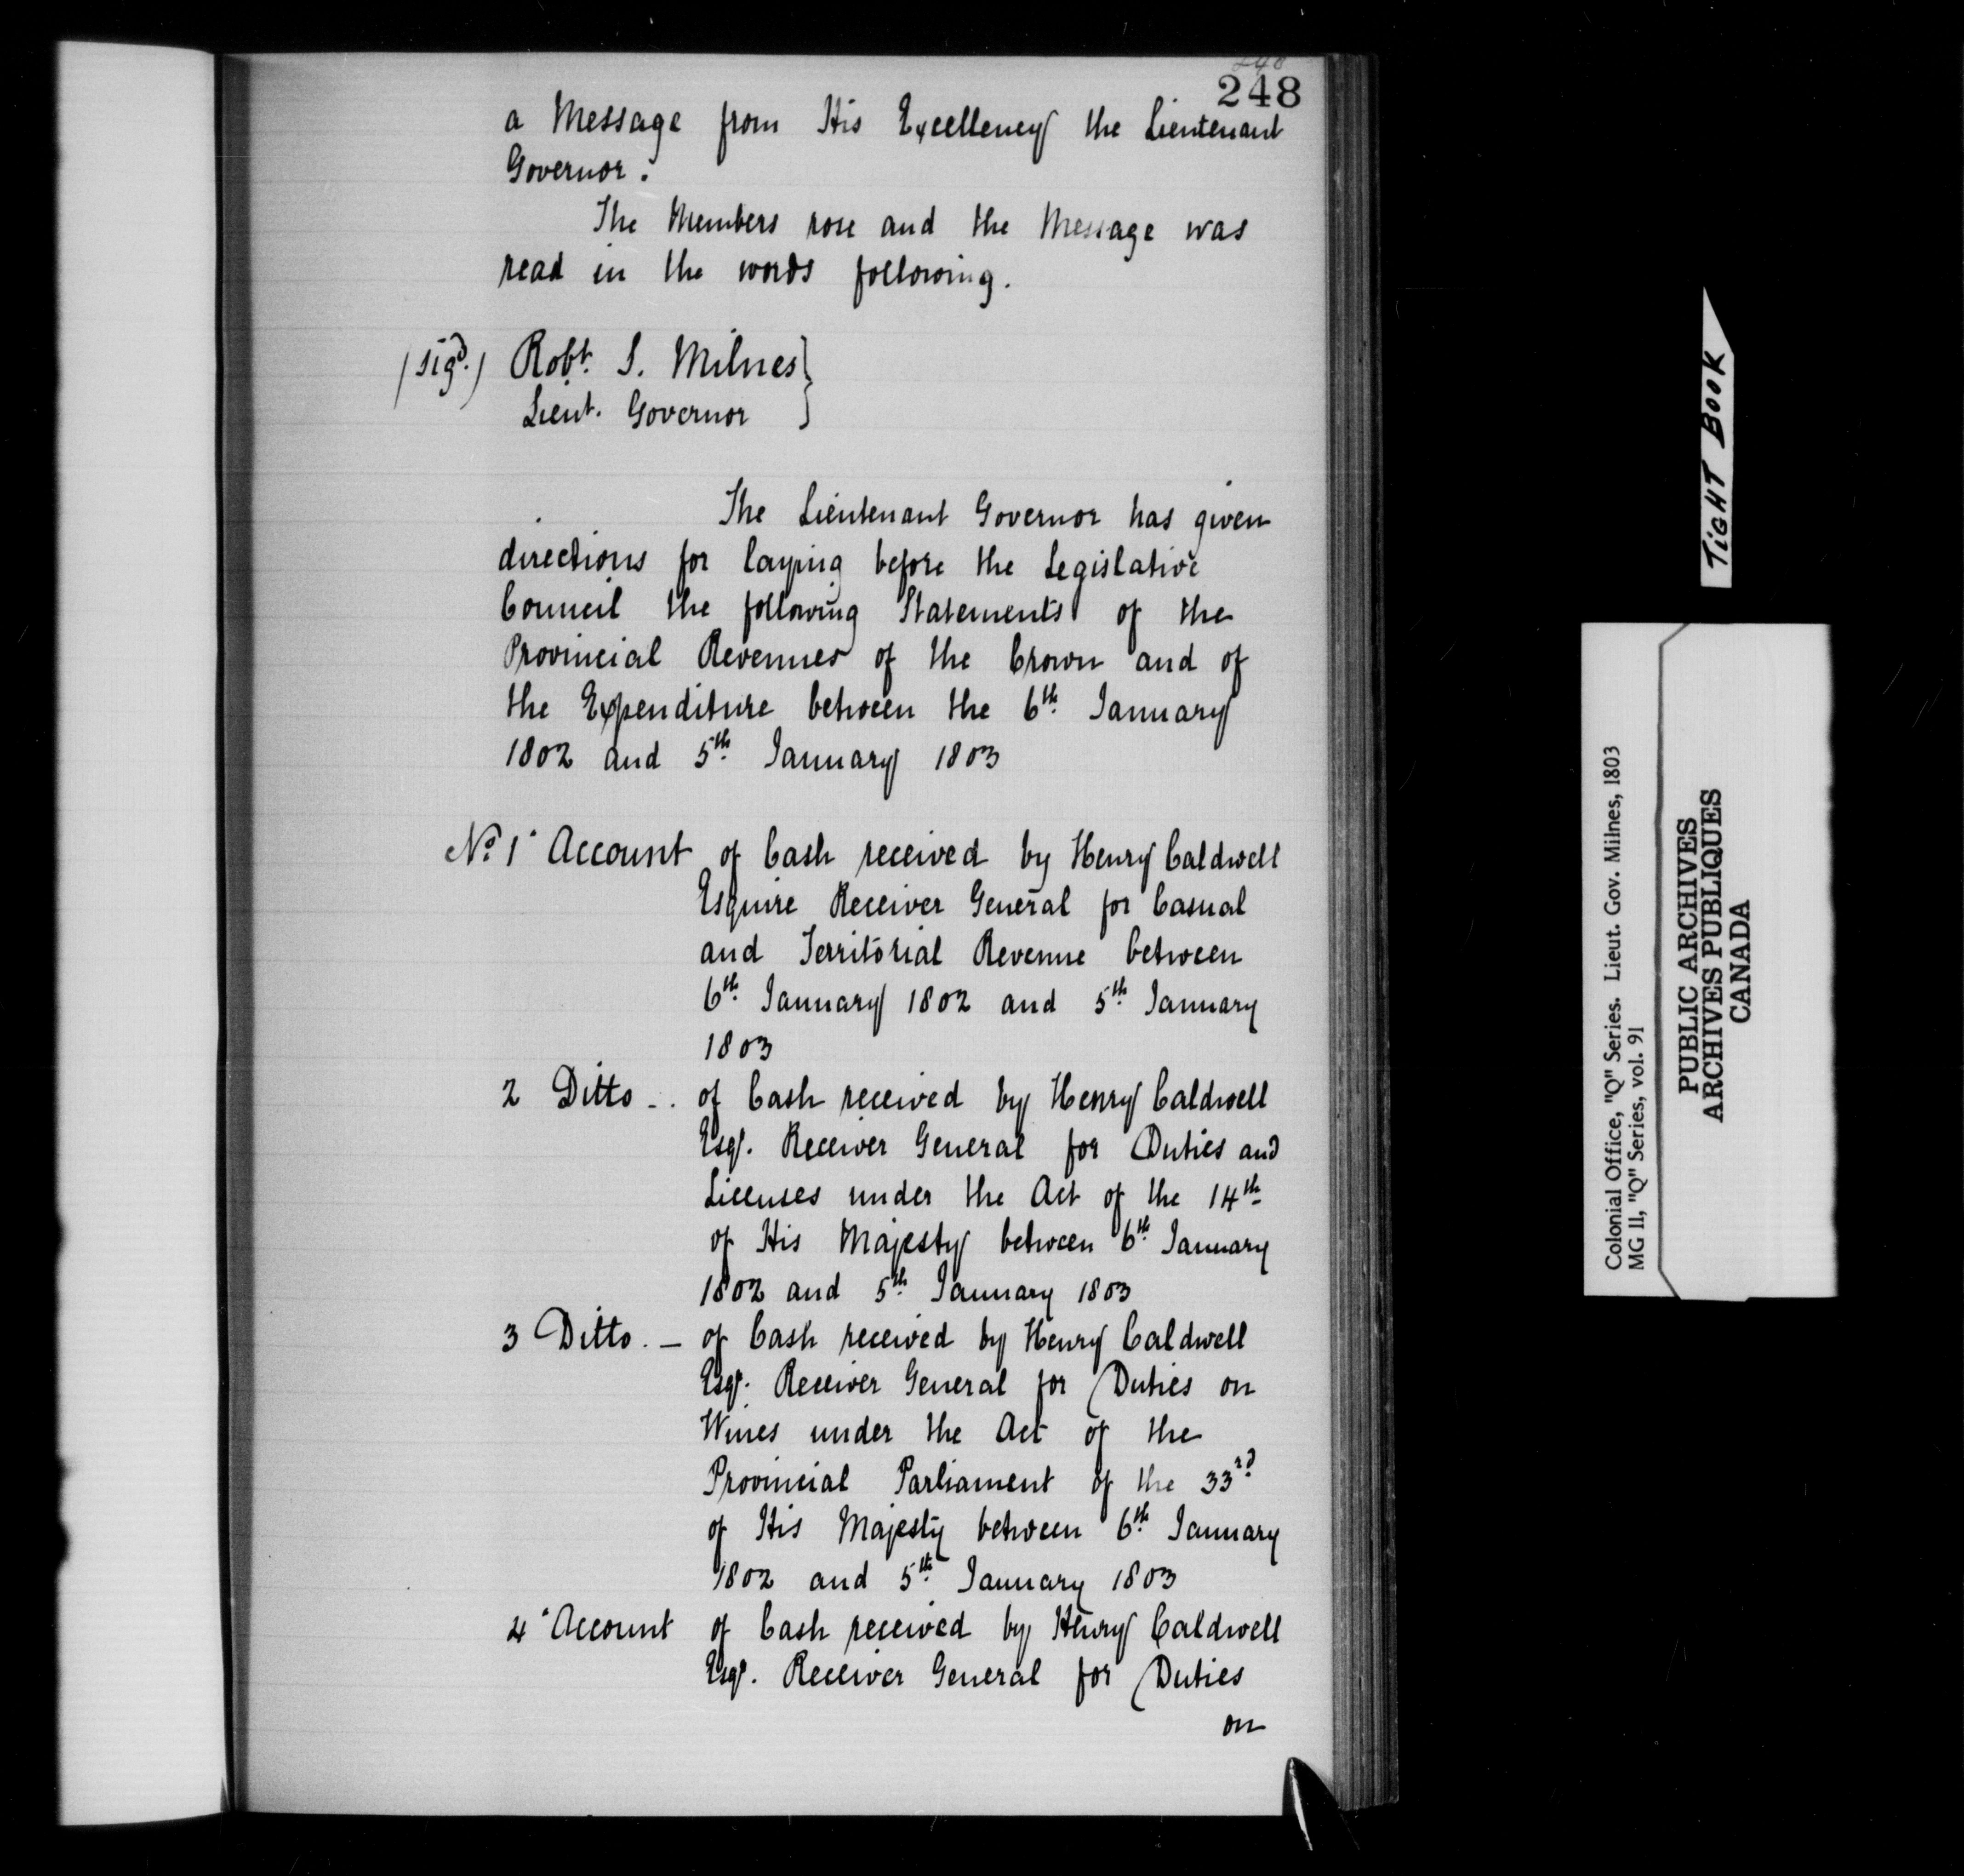 248
248
a Message from His Excellency the Lieutenant
Governor.
The Members rose and the Message was
read in the words following.
(sigd.) Robt. S. Milnes }
Lieut. Governor
The Lieutenant Governor has given
directions for laying before the Legislative
Council the following Statements of the
Provincial Revenues of the Crown and of
the Expenditure between the 6th January
1802 and 5th January 1803
No. 1 Account of Cash received by Henry Caldwell
Esquire Receiver General for Casual
and Territorial Revenue between
6th January 1802 and 5th January
1803
2 Ditto - . of Cash received by Henry Caldwell
Esqr. Receiver General for Duties and
Licenses under the Act of the 14th
of His Majesty between 6th January
1802 and 5th January 1803
3 Ditto . - of Cash received by Henry Caldwell
Esqr. Receiver General for Duties on
Wines under the Act of the
Provincial Parliament of the 33rd
of His Majesty between 6th January
1802 and 5th January 1803
4 Account of Cash received by Henry Caldwell
Esqr. Receiver General for Duties
on
TIGHT BOOK
Colonial Office, "Q" Series. Lieut. Gov. Milnes, 1803
MG 11, "Q" Series, vol. 91
PUBLIC ARCHIVES
ARCHIVES PUBLIQUES
CANADA